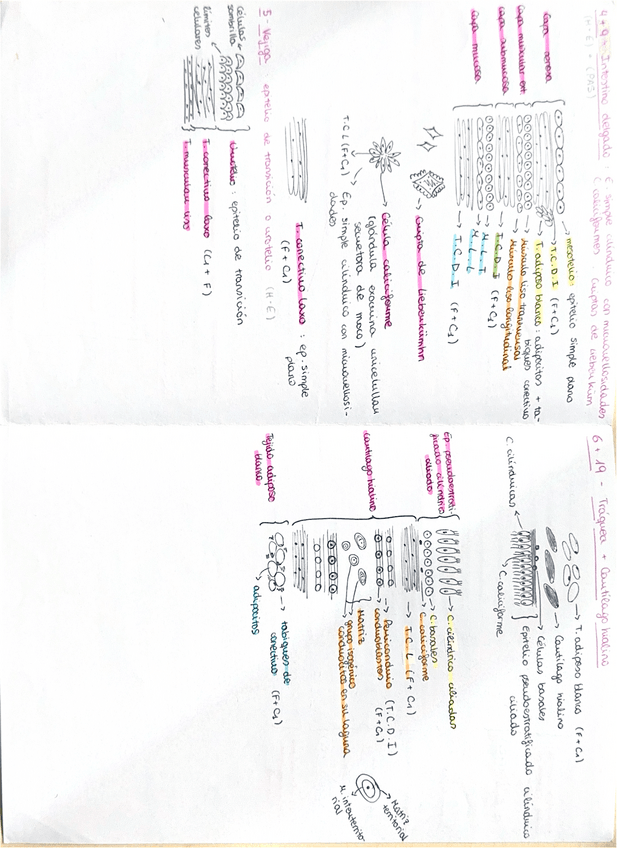 4 + 9 - Intestino delgado : E. simple cilíndrico con microvellosidades
(H-E) + (PAS) C. caliciformes Criptas de Lieberkühn
Capa serosa
mesotelio: epitelio simple plano
T.C.D.I (F+C1)
T. adiposo blanco: adipocitos + ta-
biques conectivo (F+C1)
Capa muscular ext.
Músculo liso transversal
Músculo liso longitudinal
Capa submucosa
T.C.D.I (F+C1)
Capa mucosa
M.L.T
M.L.L
T.C.D.I (F+C1)
Cripta de Lieberkühn
Célula caliciforme
(glándula exocrina unicelular
secretora de moco)
T.C.L (F+C1)
Ep. simple cilíndrico con microvellosi-
dades
T. conectivo laxo : ep. simple
(F+C1) plano
5 - Vejiga : epitelio de transición o urotelio (H-E)
Células
sombrilla
límites
celulares
Urotelio : epitelio de transición
T. conectivo laxo (C1 + F)
T. muscular liso
6 + 19 - Tráquea + Cartílago hialino
T. adiposo blanco (F+C1)
Cartílago hialino
Células basales
Epitelio pseudoestratificado cilíndrico
ciliado
C. cilíndricas
C. caliciforme
Ep. pseudoestrati-
ficado cilíndrico
ciliado
C. cilíndrico ciliadas
C. basales
C. caliciforme
T.C.L (F+C1)
Cartílago hialino
Pericondrio (T.C.D.I)
condroblastos (F+C1)
Matriz
grupo isogénico
condrocitos en su laguna
Matriz
territorial
M. interterrito-
rial
Tejido adiposo
blanco
tabiques de
conectivo (F+C1)
adipocitos